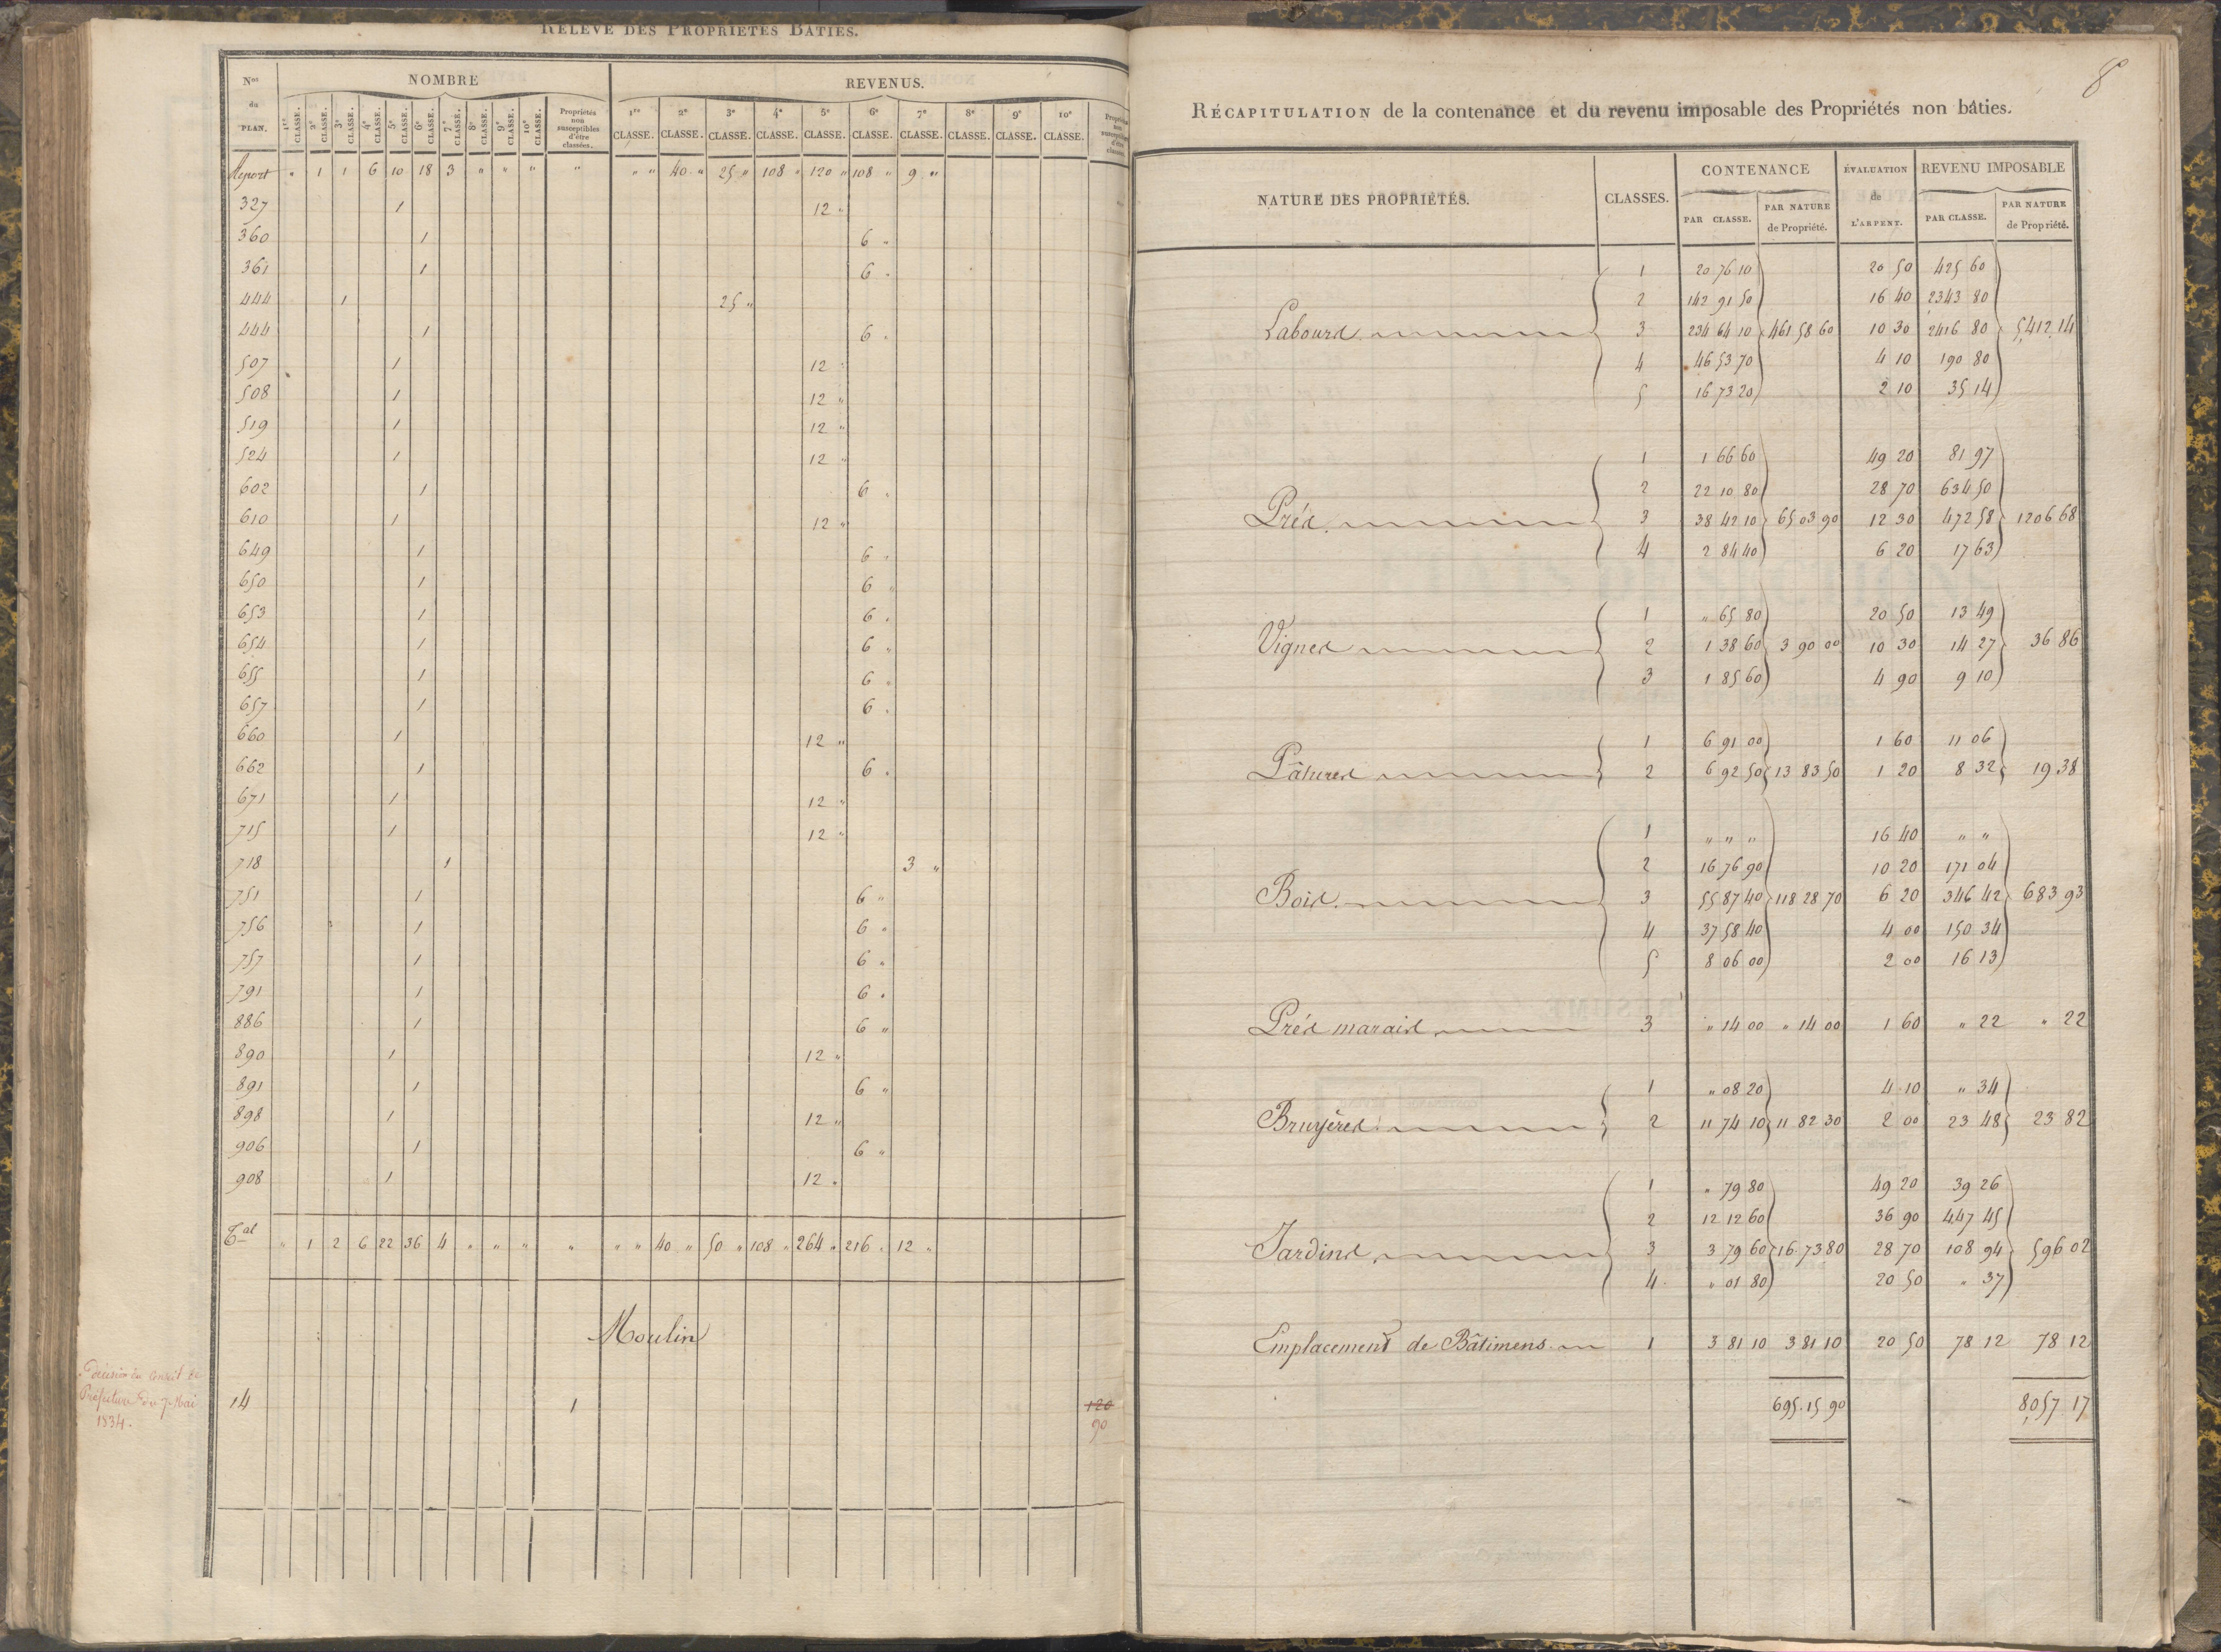 RELEVÉ DES PROPRIÉTÉS BÂTIES.
Nos du PLAN. NOMBRE REVENUS.
1re CLASSE. 2e CLASSE. 3e CLASSE. 4e CLASSE. 5e CLASSE. 6e CLASSE. 7e CLASSE. 8e CLASSE. 9e CLASSE. 10e CLASSE. Propriétés non susceptibles d'être classées. 1re CLASSE. 2e CLASSE. 3e CLASSE. 4e CLASSE. 5e CLASSE. 6e CLASSE. 7e CLASSE. 8e CLASSE. 9e CLASSE. 10e CLASSE.
Report " 1 1 6 10 18 3 " " " " " " 40 " 25 " 108 " 120 " 108 " 9 "
327 1 12 "
360 1 6 "
361 1 6 "
444 1 25 "
444 1 6 "
507 1 12 "
508 1 12 "
519 1 12 "
524 1 12 "
602 1 6 "
610 1 12 "
649 1 6 "
650 1 6 "
653 1 6 "
654 1 6 "
655 1 6 "
657 1 6 "
660 1 12 "
662 1 6 "
671 1 12 "
715 1 12 "
718 1 3 "
751 1 6 "
756 1 6 "
757 1 6 "
791 1 6 "
886 1 6 "
890 1 12 "
891 1 6 "
898 1 12 "
906 1 6 "
908 1 12 "
Tal " 1 2 6 22 36 4 " " " " " " 40 " 50 " 108 " 264 " 216 " 12 "
Moulin
Décision du Conseil de
Préfecture du 7 Mai
1834.
14 1 120
90
8
RÉCAPITULATION de la contenance et du revenu imposable des Propriétés non bâties.
NATURE DES PROPRIÉTÉS. CLASSES. CONTENANCE ÉVALUATION de L'ARPENT. REVENU IMPOSABLE
PAR CLASSE. PAR NATURE de Propriété. PAR CLASSE. PAR NATURE de Propriété.
1 20 76 10 20 50 425 60
2 142 91 50 16 40 2343 80
Labours 3 234 64 10 461 58 60 10 30 2416 80 5,412.14
4 46 53 70 4 10 190 80
5 16 73 20 2 10 35 14
1 1 66 60 49 20 81 97
2 22 10 80 28 70 634 50
Prés 3 38 42 10 65 03 90 12 30 472 58 1206 68
4 2 84 40 6 20 17 63
1 " 65 80 20 50 13 49
Vignes 2 1 38 60 3 90 00 10 30 14 27 36 86
3 1 85 60 4 90 9 10
1 6 91 00 1 60 11 06
Pâtures 2 6 92 50 13 83 50 1 20 8 32 19 38
1 " " " 16 40 " "
2 16 76 90 10 20 171 04
Bois 3 55 87 40 118 28 70 6 20 346 42 683 93
4 37 58 40 4 00 150 34
5 8 06 00 2 00 16 13
Prés marais 3 " 14 00 " 14 00 1 60 " 22 " 22
1 " 08 20 4 10 " 34
Bruyères 2 11 74 10 11 82 30 2 00 23 48 23 82
1 " 79 80 49 20 39 26
2 12 12 60 36 90 447 45
Jardins 3 3 79 60 16 73 80 28 70 108 94 596 02
4 " 01 80 20 50 " 37
Emplacement de Bâtimens 1 3 81 10 3 81 10 20 50 78 12 78 12
695.15 90 8,057 17